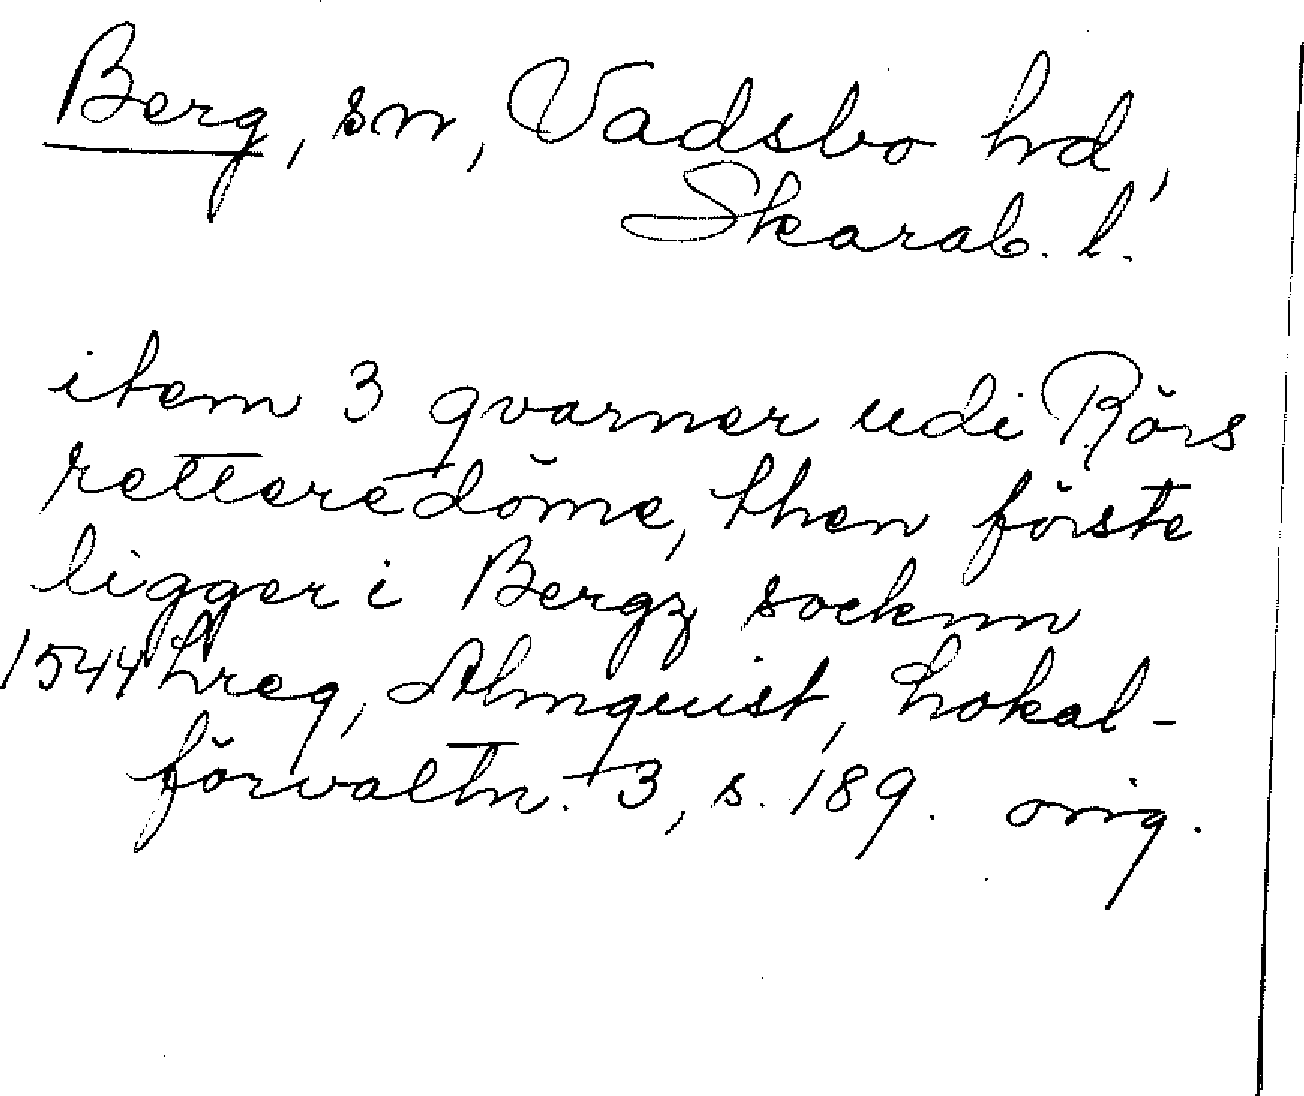 Berg, sn, Vadsbo hd,
Skarab. l.
item 3 qvarner udi Rörs
retteredöme, then förste
ligger i Bergz socknn
1544 Lreg, Almquist, Lokal-
förvaltn. 3, s. 189. orig.